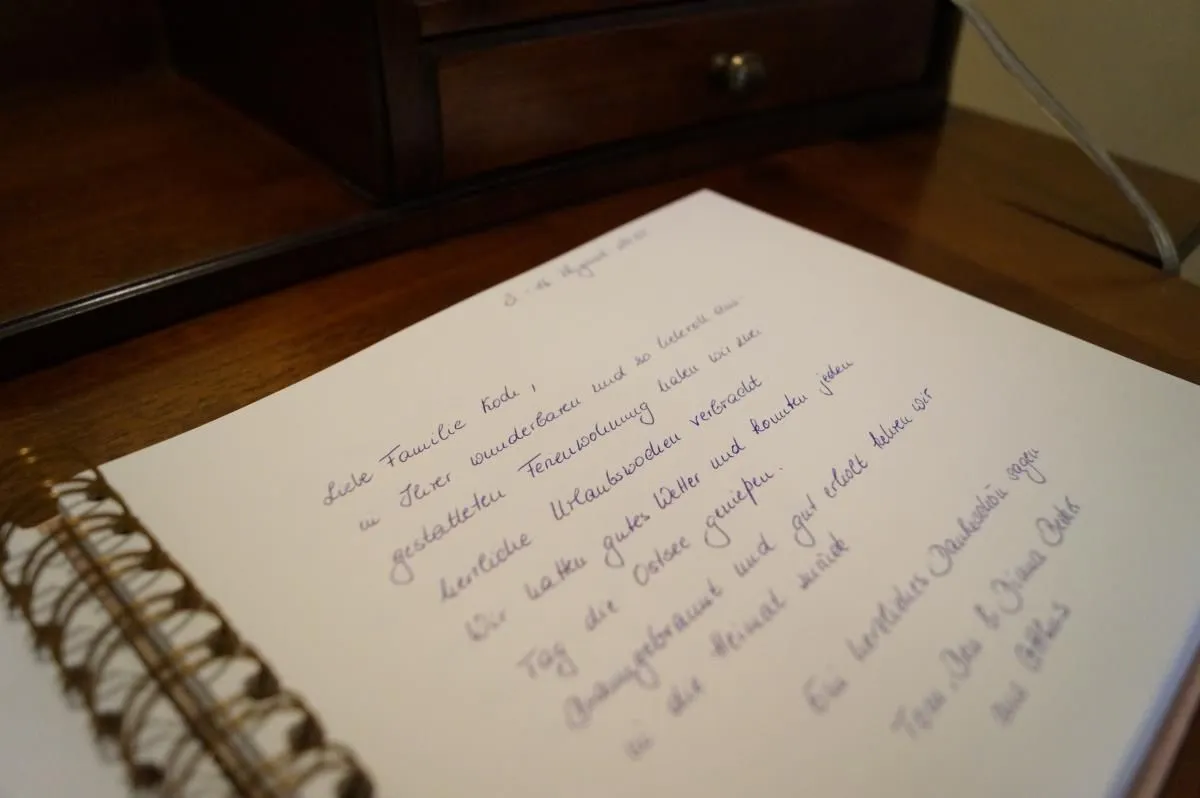 Liebe Familie Koch,
in Ihrer wunderbaren und so liebevoll aus-
gestatteten Ferienwohnung haben wir zwei
herrliche Urlaubswochen verbracht
Wir hatten gutes Wetter und konnten jeden
Tag die Ostsee genießen.
Braungebrannt und gut erholt kehren wir
in die Heimat zurück
Ein herzliches Dankeschön sagen
Tom, & Diana
aus